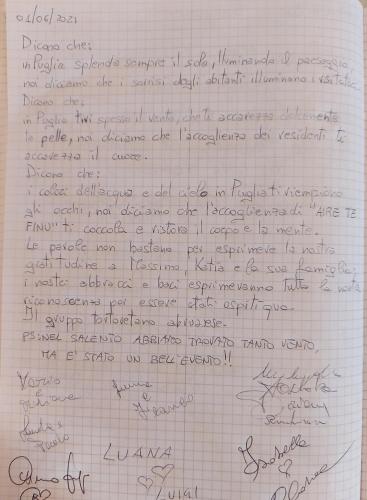 01/06/2021
Dicono che:
in Puglia splenda sempre il sole, illuminando il paesaggio
noi diciamo che i sorrisi degli abitanti illuminano i visitatori.
Dicono che:
in Puglia tiri spesso il vento, che ti accarezza dolcemente
la pelle, noi diciamo che l'accoglienza dei residenti ti
accarezza il cuore.
Dicono che:
i colori dell'acqua e del cielo in Puglia ti riempiono
gli occhi, noi diciamo che l'accoglienza di "AIRE TE
FINU" ti coccola e ristora il corpo e la mente.
Le parole non bastano per esprimere la nostra
gratitudine a Massimo, Katia e la sua famiglia;
i nostri abbracci e baci esprimevanno tutta la nostra
riconoscenza per essere stati ospiti qua.
Il gruppo tortoretano abruzzese.
PS: NEL SALENTO ABBIAMO TROVATO TANTO VENTO,
MA E' STATO UN BELL'EVENTO!!
LUANA
Isabella
LUIGI